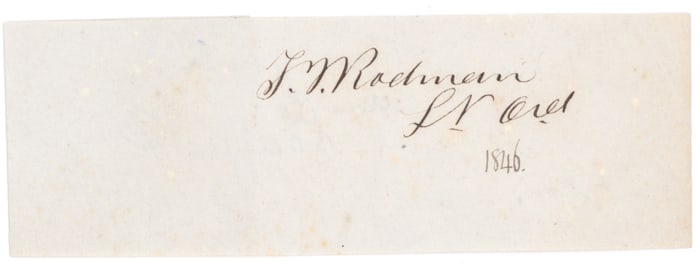 T. J. Rodman
Lt Ord
1846.